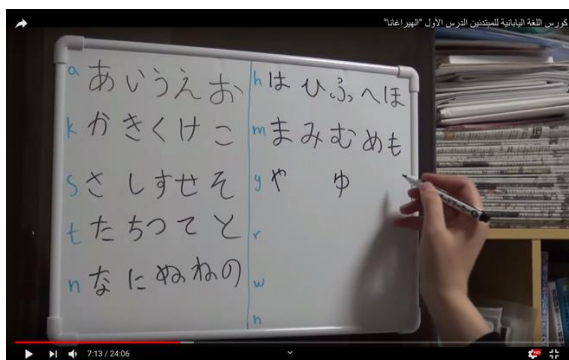 كورس اللغة اليابانية للمبتدئين الدرس الأول "الهيراغانا"
a あいうえお
k かきくけこ
s さしすせそ
t たちつてと
n なにぬねの
h はひふへほ
m まみむめも
y や ゆ
r
w
n
7:13 / 24:06
HD